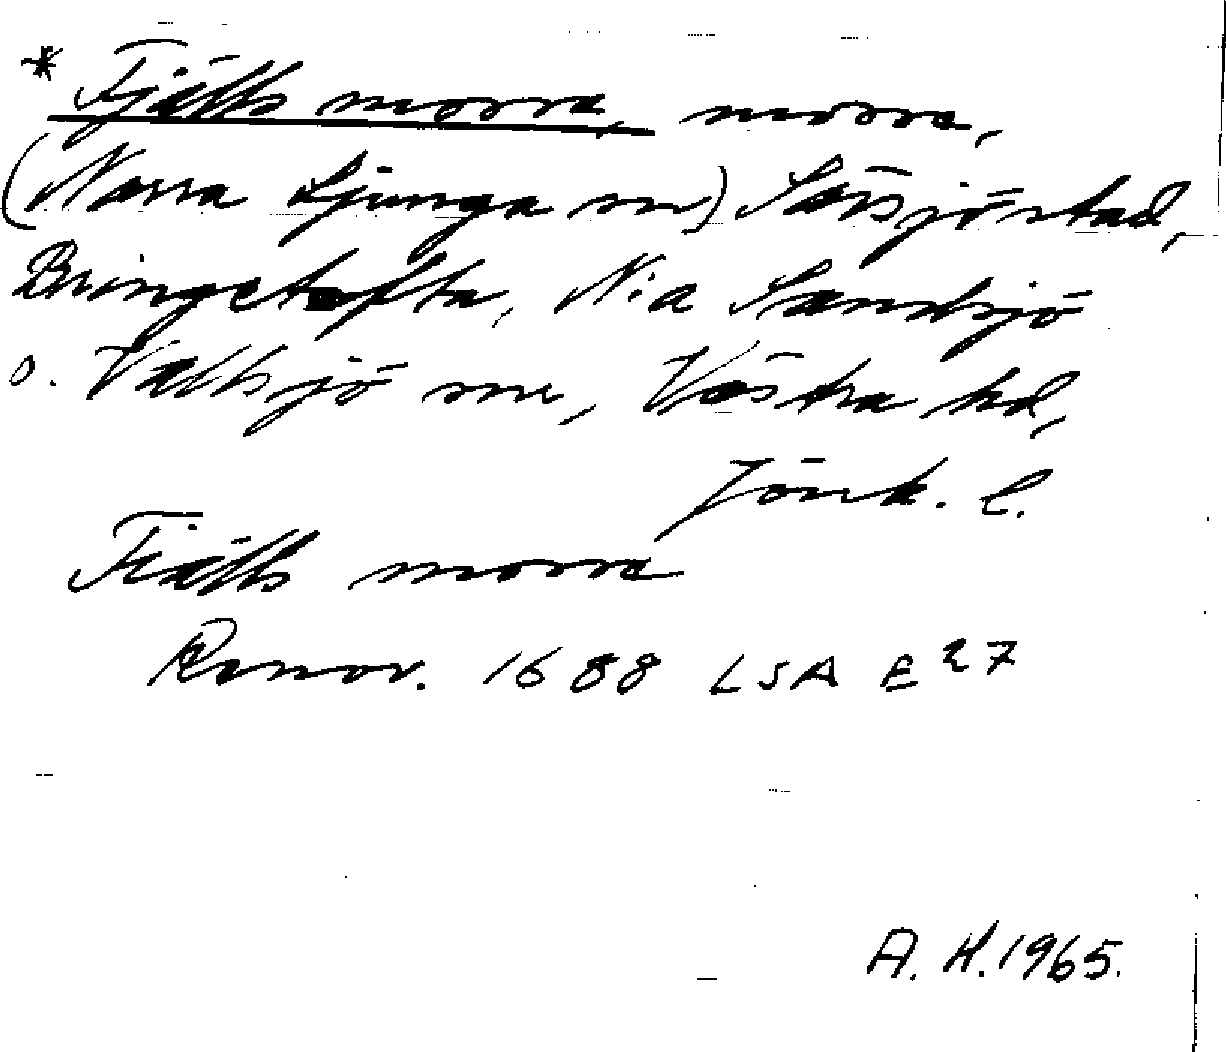 * Fjälls mosse, mosse,
(Norra Ljunga sn) Sävsjö stad,
Bringetofta, N:a Sandsjö
o. Vallsjö snr, Västra hd,
Jönk. l.
Fiälls mosse
Renov. 1688 LSA E27
A. H. 1965.